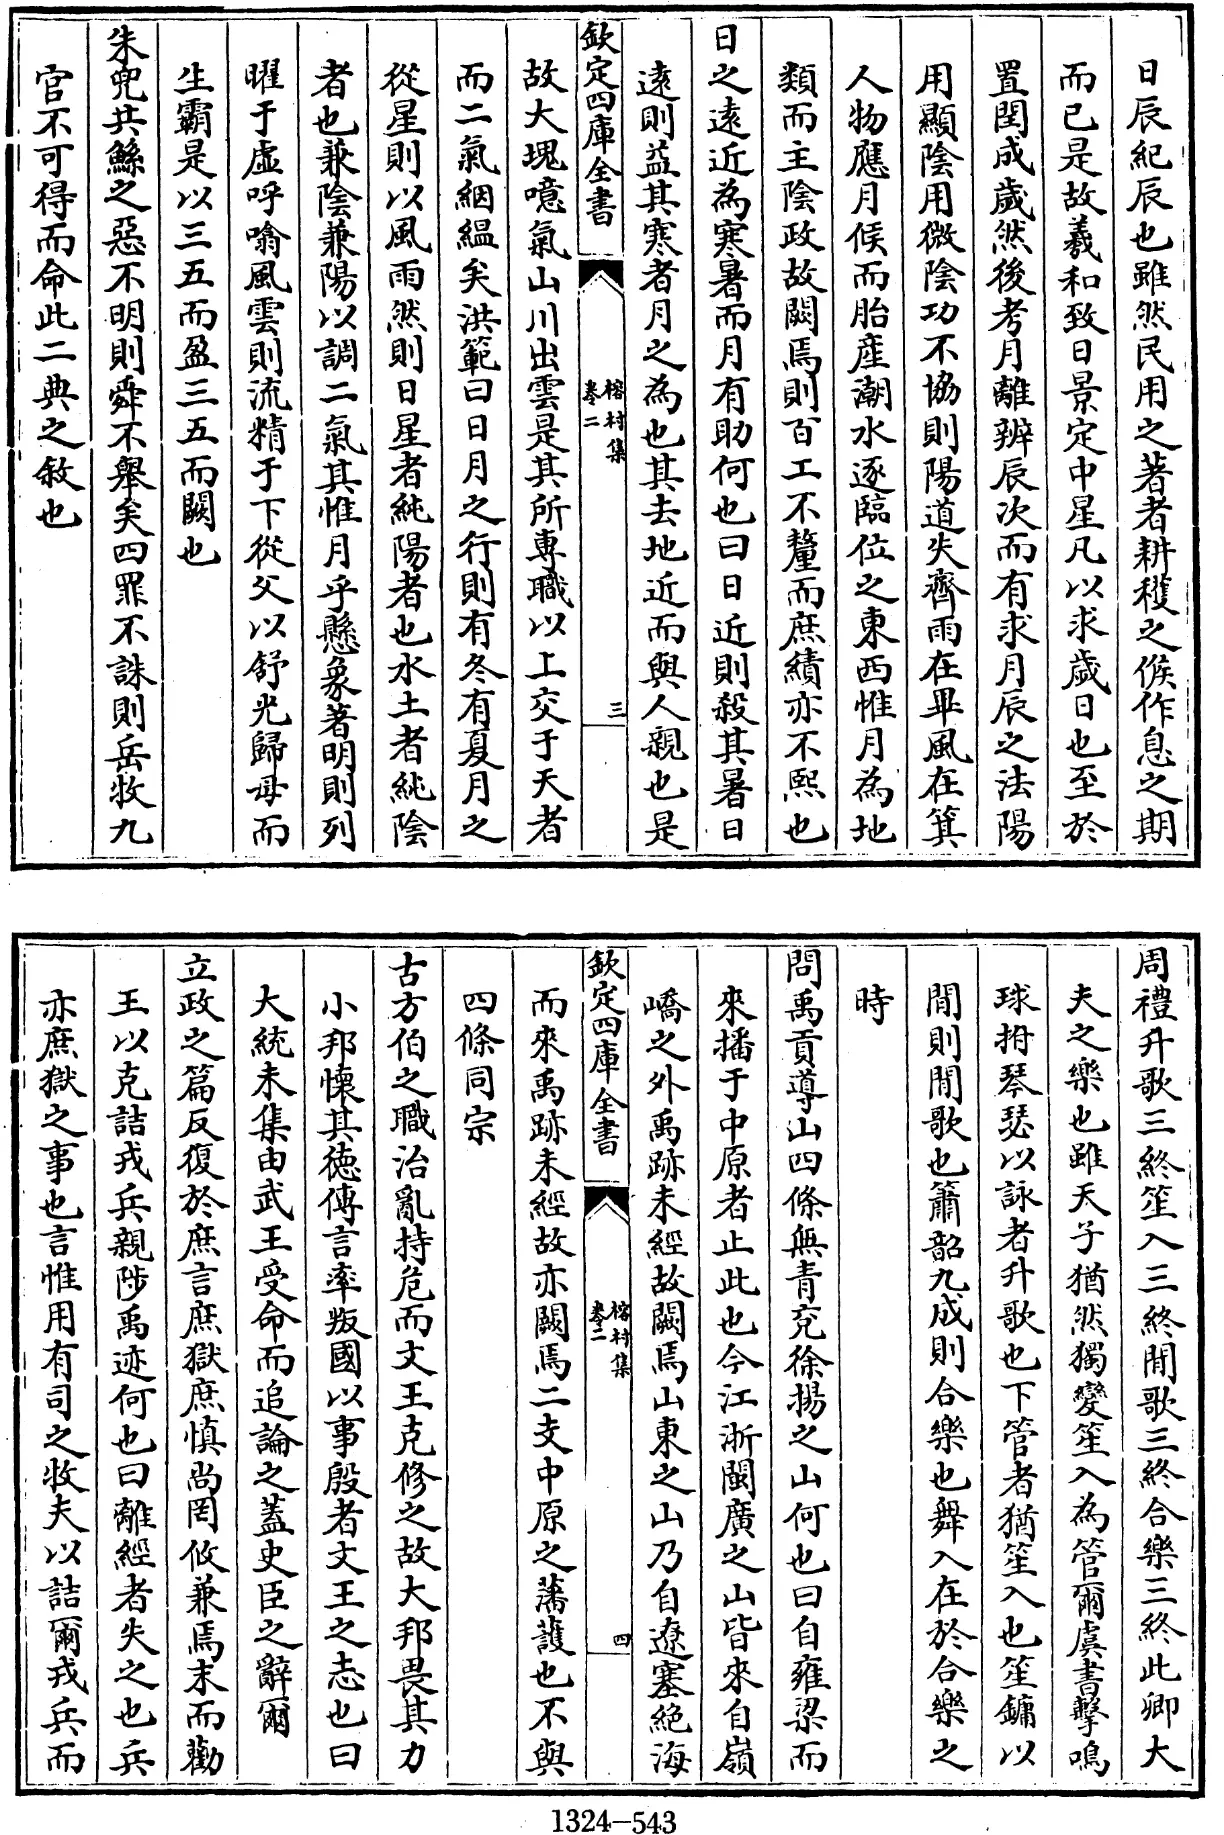 日辰紀辰也雖然民用之著者耕穫之候作息之期
而已是故羲和致日景定中星凡以求歲日也至於
置閏成歲然後考月離辨辰次而有求月辰之法陽
用顯陰用微陰功不協則陽道失齊雨在畢風在箕
人物應月候而胎產潮水逐臨位之東西惟月為地
類而主陰政故闕焉則百工不釐而庶績亦不熙也
日之遠近為寒暑而月有助何也曰日近則殺其暑日
遠則益其寒者月之為也其去地近而與人親也是
欽定四庫全書
榕村集
卷二
三
故大塊噫氣山川出雲是其所專職以上交于天者
而二氣絪縕矣洪範曰日月之行則有冬有夏月之
從星則以風雨然則日星者純陽者也水土者純陰
者也兼陰兼陽以調二氣其惟月乎懸象著明則列
曜于虛呼噏風雲則流精于下從父以舒光歸母而
生霸是以三五而盈三五而闕也
朱兜共鯀之惡不明則舜不舉矣四罪不誅則岳牧九
官不可得而命此二典之敘也
周禮升歌三終笙入三終閒歌三終合樂三終此卿大
夫之樂也雖天子猶然獨變笙入為管爾虞書擊鳴
球拊琴瑟以詠者升歌也下管者猶笙入也笙鏞以
閒則閒歌也簫韶九成則合樂也舞入在於合樂之
時
問禹貢導山四條無青兗徐揚之山何也曰自雍梁而
來播于中原者止此也今江浙閩廣之山皆來自嶺
嶠之外禹跡未經故闕焉山東之山乃自遼塞絶海
欽定四庫全書
榕村集
卷二
四
而來禹跡未經故亦闕焉二支中原之藩護也不與
四條同宗
古方伯之職治亂持危而文王克修之故大邦畏其力
小邦懷其德傳言率叛國以事殷者文王之志也曰
大統未集由武王受命而追論之蓋史臣之辭爾
立政之篇反復於庶言庶獄庶慎尚罔攸兼焉末而勸
王以克詰戎兵親陟禹迹何也曰離經者失之也兵
亦庶獄之事也言惟用有司之牧夫以詰爾戎兵而
1324—543